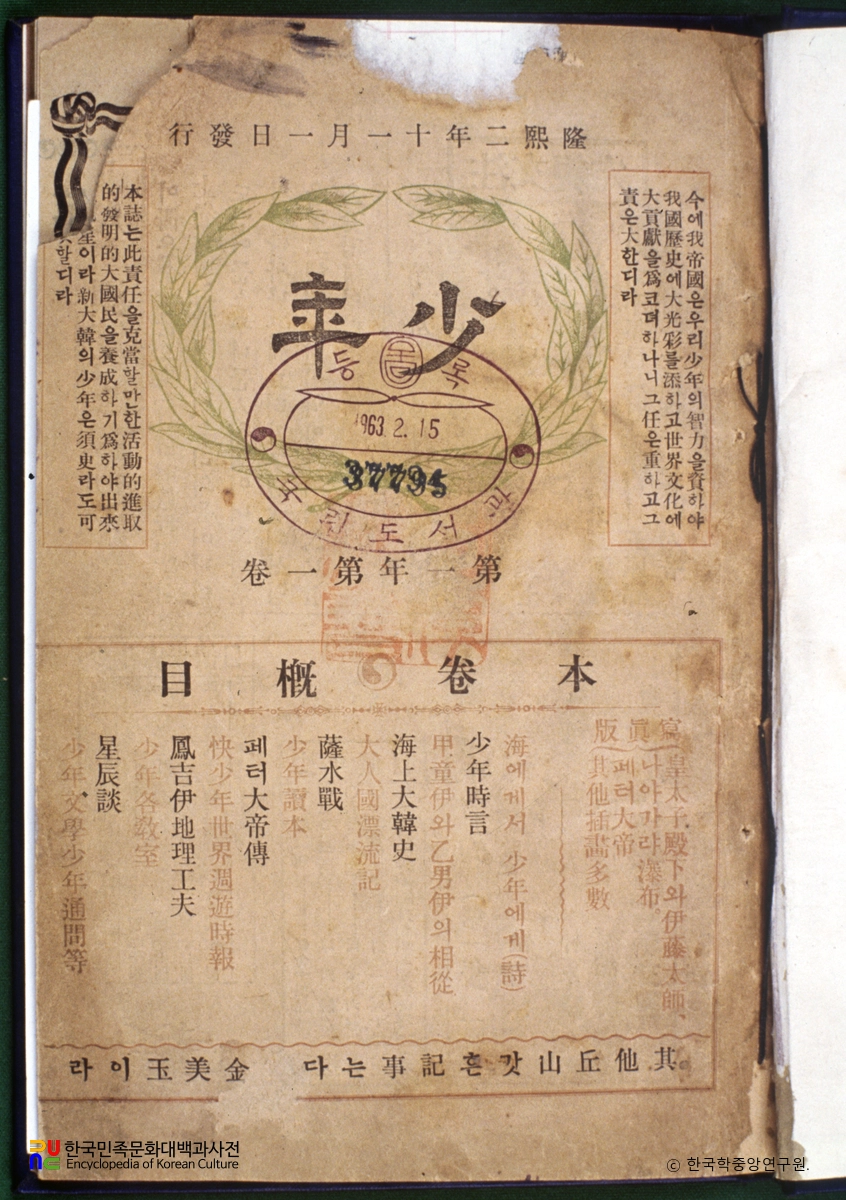 隆熙二年十一月一日發行
今에我帝國은우리少年의智力을資하야
我國歷史에大光彩를添하고世界文化에
大貢獻을爲코뎌하나니그任은重하고그
責은大한디라
少年
本誌는此責任을克當할만한活動的進取
的發明的大國民을養成하기爲하야出來
이라新大韓의少年은須臾라도可
할디라
등록
1963. 2. 15
37795
도서관
第一年第一卷
本卷槪目
寫眞版
皇太子殿下와伊藤太師、
나이가라瀑布。
페터大帝
其他揷畵多數
海에게서 少年에게(詩)
少年時言
甲童伊와乙男伊의相從
海上大韓史
大人國漂流記
薩水戰
少年讀本
페터大帝傳
快少年世界週遊時報
鳳吉伊地理工夫
少年各敎室
星辰談
少年文學少年通信等
其他丘山갓흔記事는다 金美玉이라
한국민족문화대백과사전
Encyclopedia of Korean Culture
© 한국학중앙연구원.